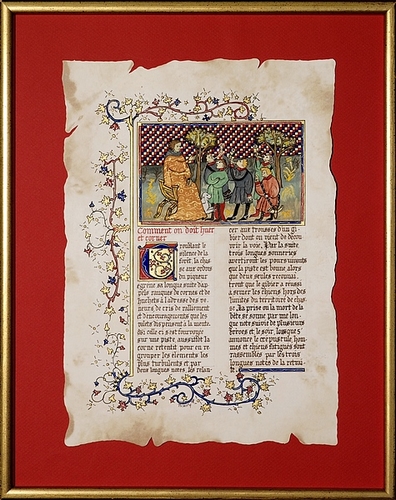 Comment on doit huer
et corner
Troublant le
silence de la
forêt, la chas
se aux ordres
du piqueur
égrène sa longue suite d'ap
pels rauques de cornes et de
huchets à l'adresse des ve
neurs, de cris de ralliement
et d'encouragements que les
valets dispensent à la meute.
si celle ci s'est fourvoyée
sur une piste, aussitôt la
corne retentit pour en re
grouper les éléments les
plus turbulents et par
deux longues notes, les relan
cer aux trousses d'un gi
bier dont on vient de décou
vrir la voie. Par la suite
trois longues sonneries
avertiront les poursuivants
que la piste est bonne alors
que deux seules reconnai
tront que le gibier a réussi
à semer les chiens hors des
limites du territoire de chas
se. La prise ou la mort de la
bête se sonne par une lon
gue note suivie de plusieurs
brèves et le soir, lorsque s'
annonce le crépuscule, hom
mes et chiens fatigués sont
rassemblés par les trois
longues notes de la retrai
te.